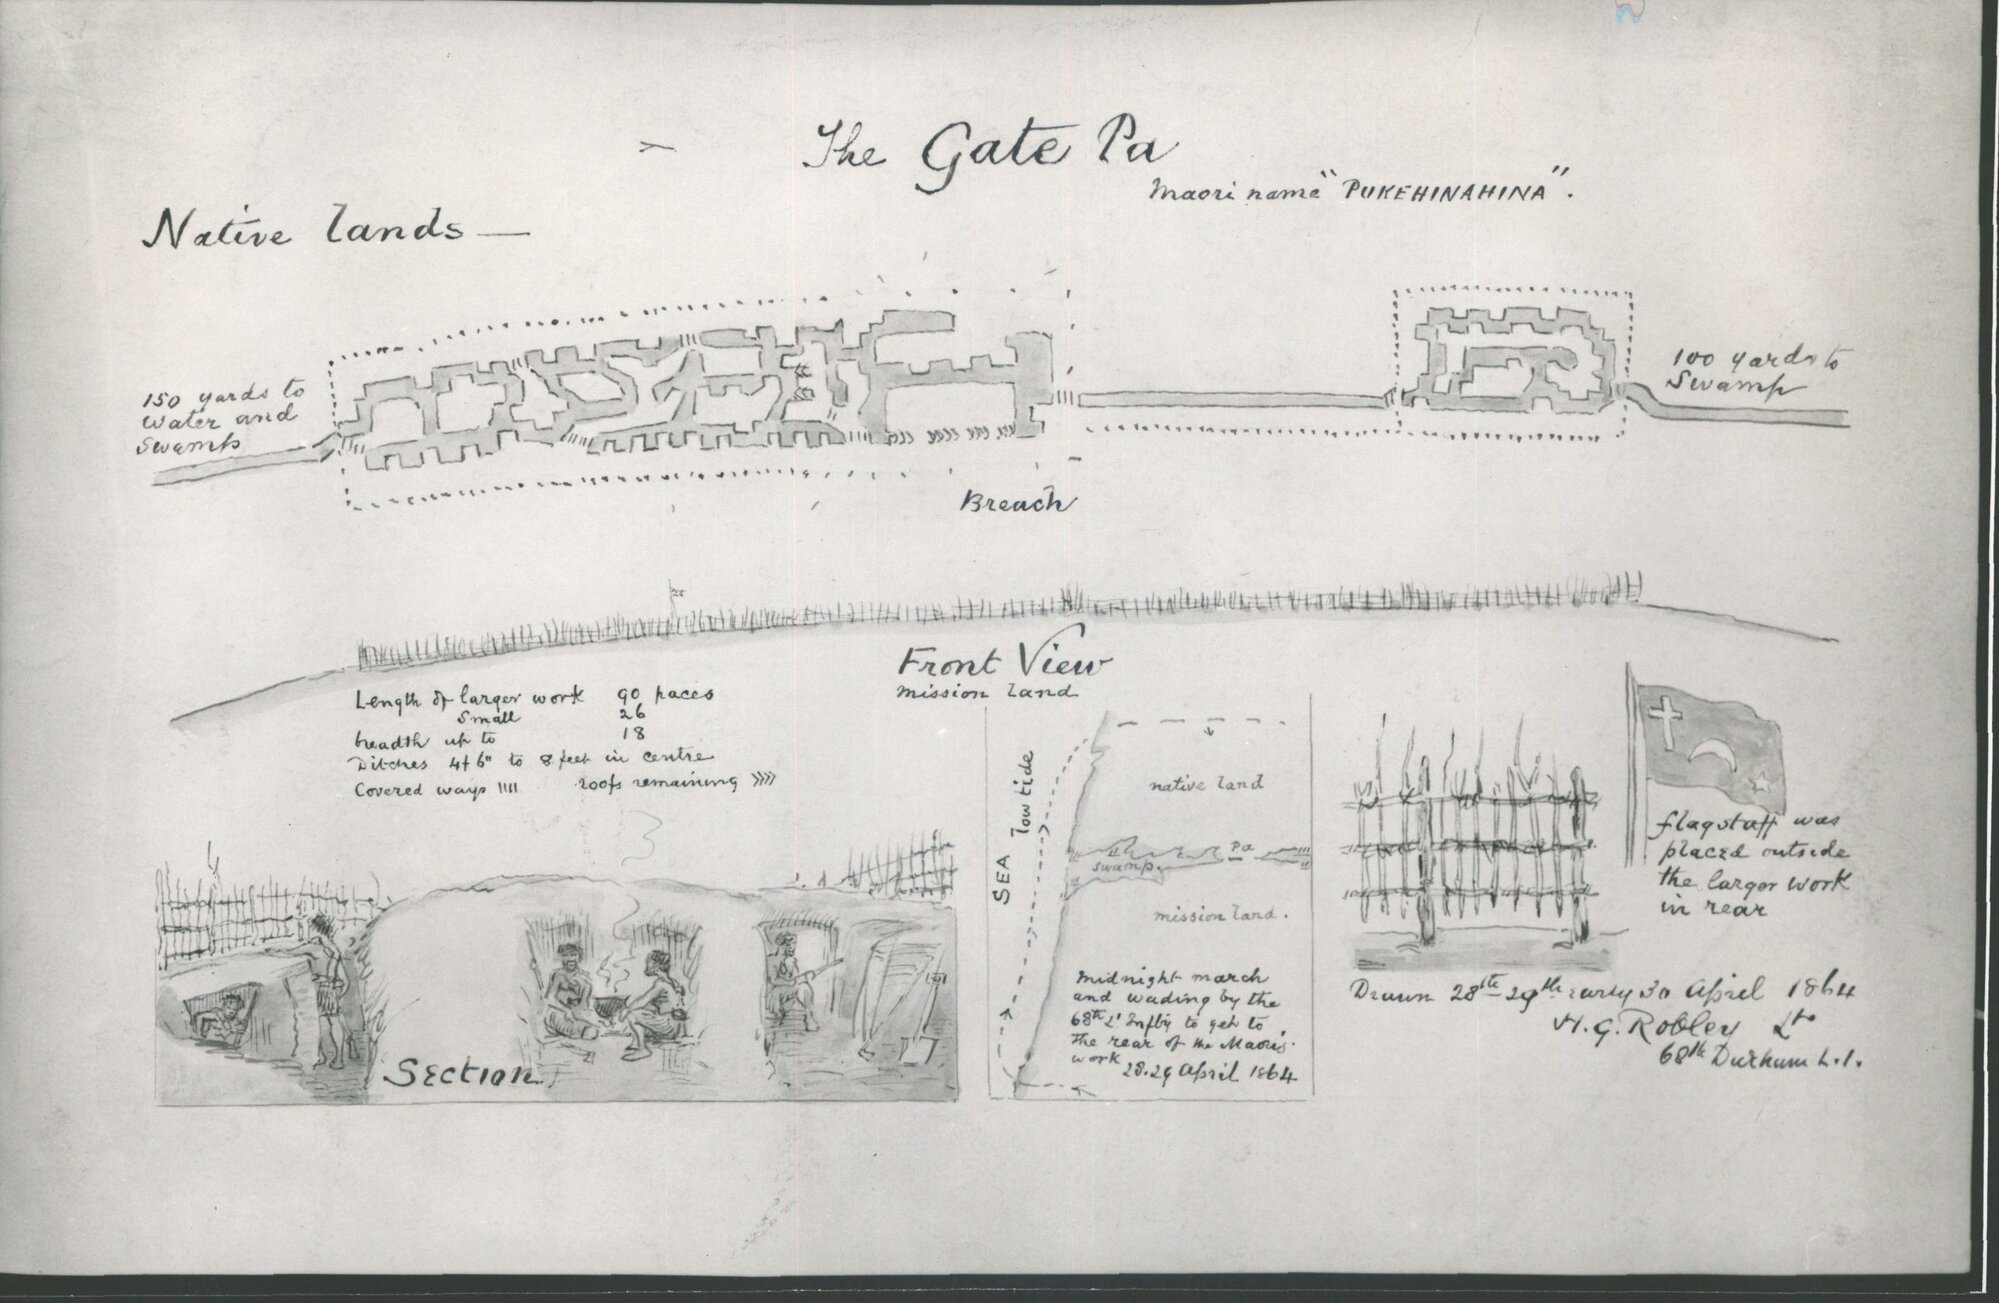 The Gate Pa
Maori name "PUKEHINAHINA".
Native lands —
150 yards to
water and
Swamp
100 yards to
Swamp
Breach
Front View
mission land
Length of larger work 90 paces
Small 26
breadth up to 18
Ditches 4ft 6" to 8 feet in centre
Covered ways IIII roofs remaining »»
Section
SEA low tide
native land
Pa
swamp
mission land.
Midnight march
and wading by the
68th Lt Inftry to get to
the rear of the Maoris.
work
28.29 April 1864
flagstaff was
placed outside
the larger work
in rear
Drawn 28th 29th early 30 April 1864
H. G. Robley Lt
68th Durham L.I.